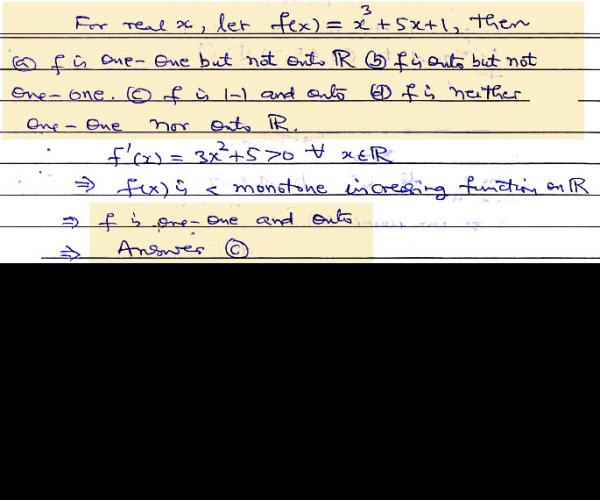 For real x, let f(x) = x³ + 5x + 1, then
(a) f is one-one but not onto ℝ (b) f is onto but not
one-one. (c) f is 1-1 and onto (d) f is neither
one-one nor onto ℝ.
f'(x) = 3x² + 5 > 0 ∀ x ∈ ℝ
⇒ f(x) is a monotone increasing function on ℝ
⇒ f is one-one and onto
⇒ Answer (c)